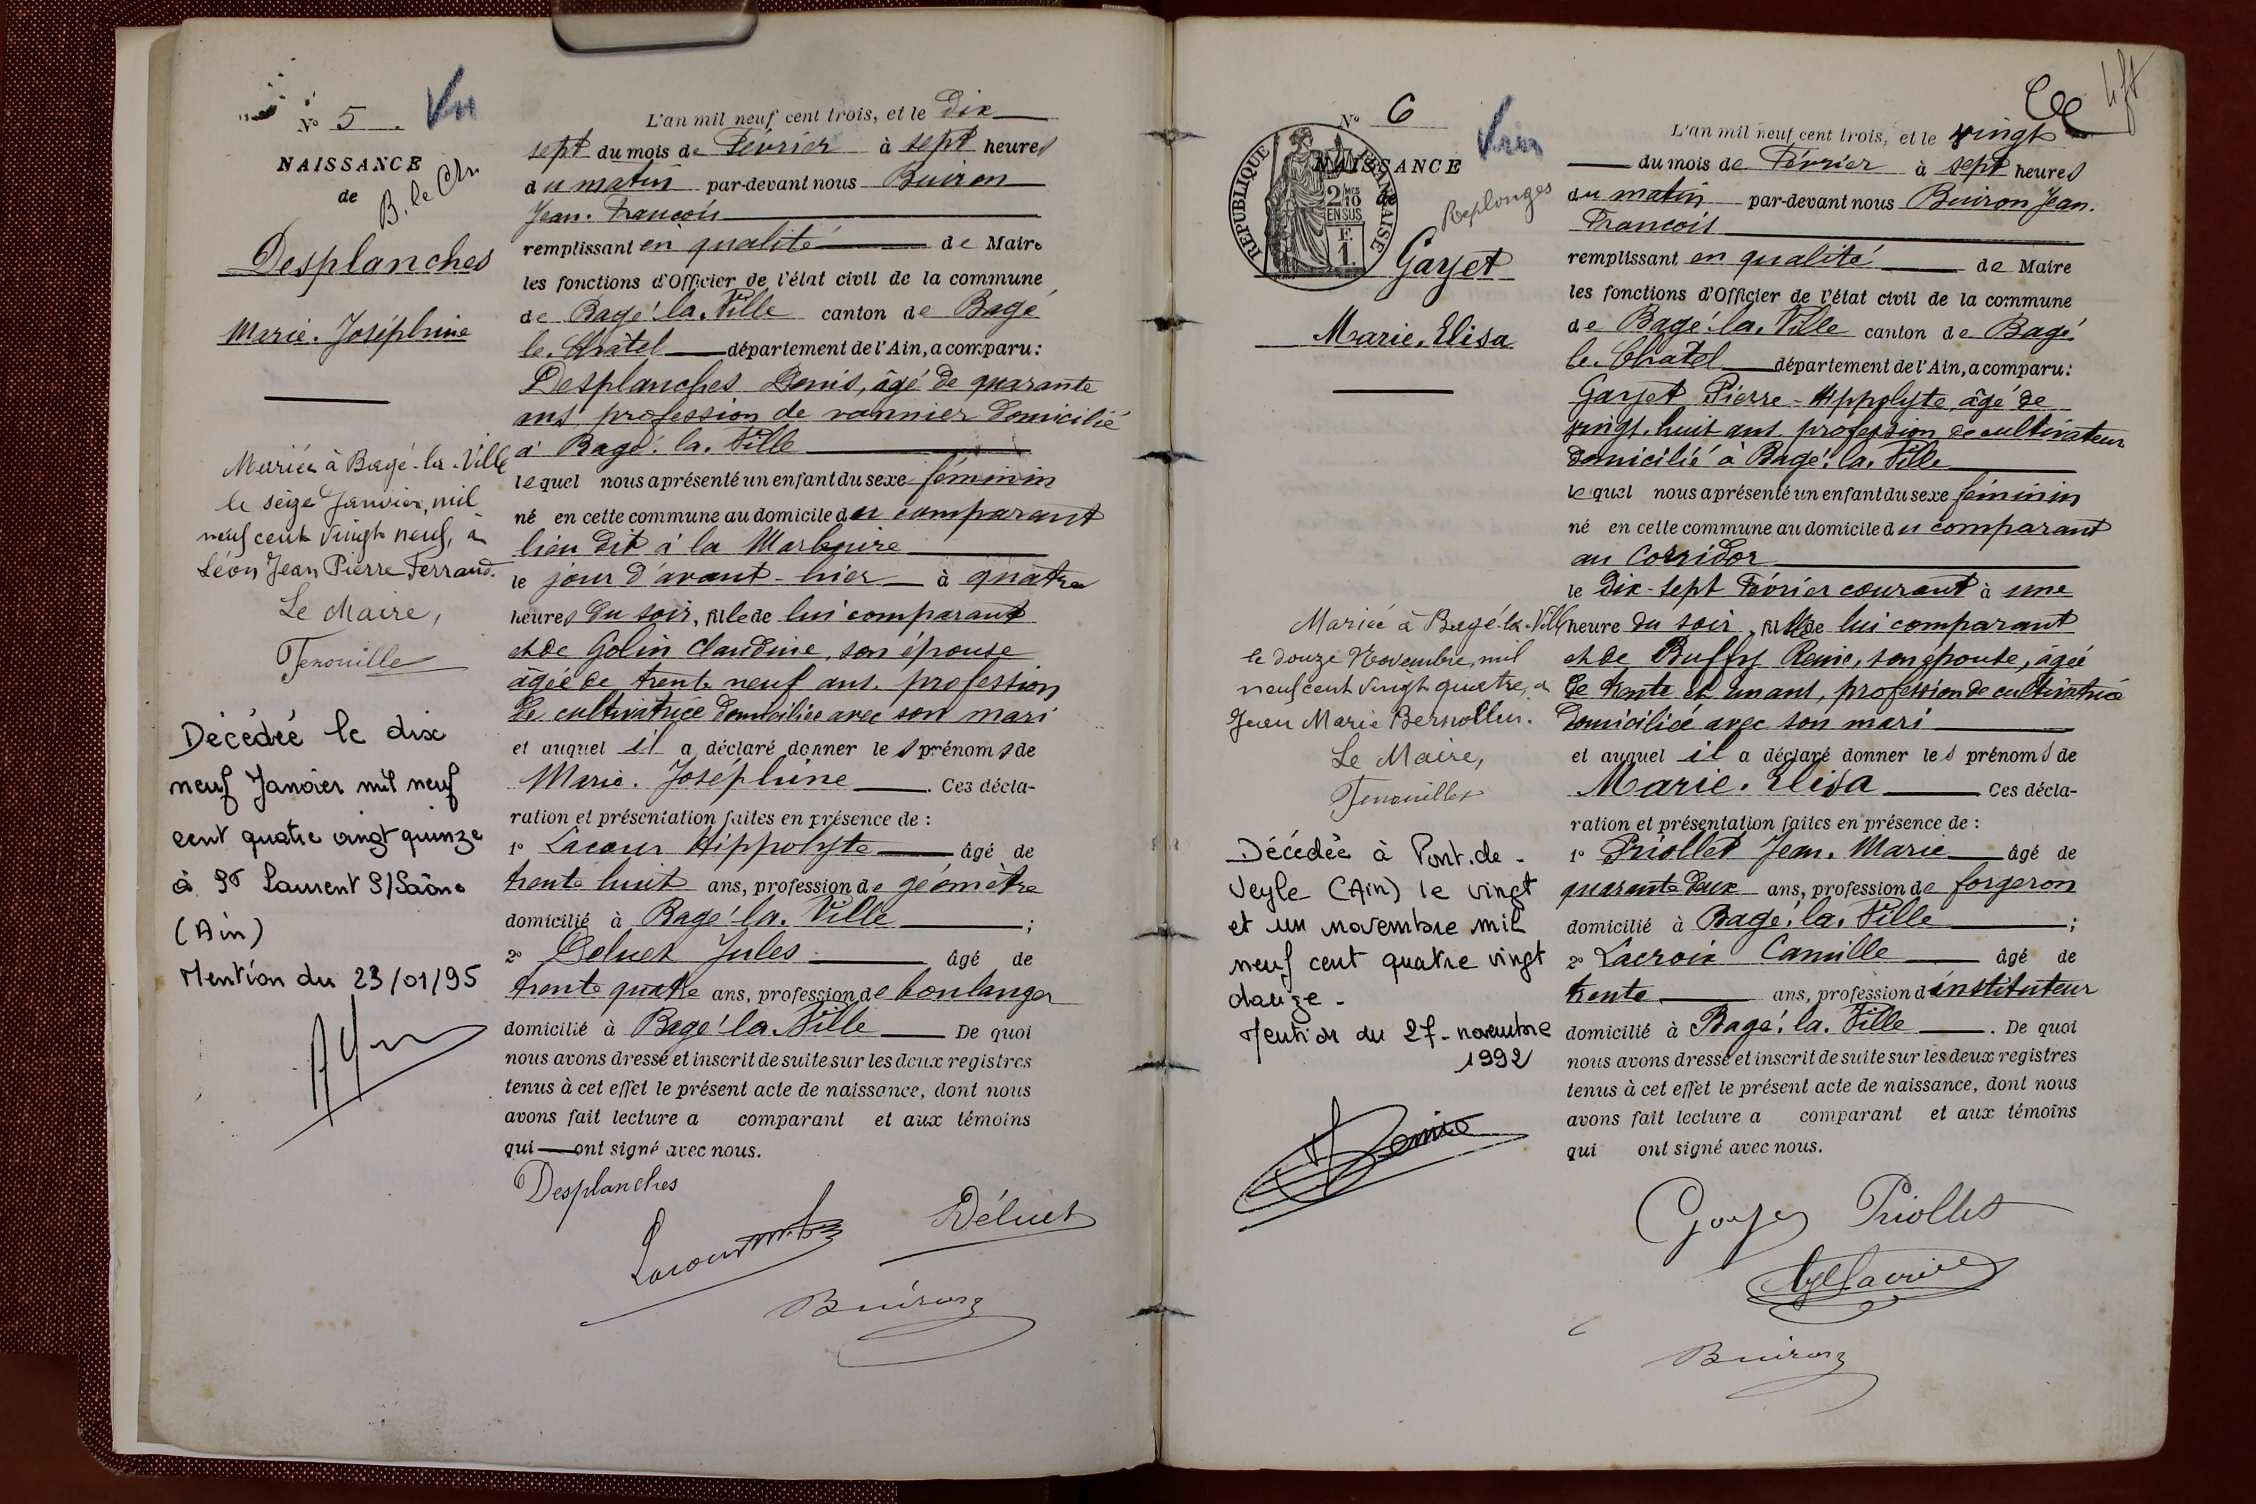 N° 5 Vu
NAISSANCE
de
B. le Ch.
Desplanches
Marie. Joséphine
Mariée à Bagé-la-Ville
le seize Janvier, mil
neuf cent vingt neuf, à
Léon Jean Pierre Ferrand.
Le Maire,
Fenouillet
Décédée le dix
neuf Janvier mil neuf
cent quatre vingt quinze
à St Laurent S/Saône
(Ain)
Mention du 23/01/95
L'an mil neuf cent trois, et le Dix
sept du mois de Février à sept heures
du matin par-devant nous Buiron
Jean. François
remplissant en qualité de Maire
les fonctions d'Officier de l'état civil de la commune
de Bagé-la-Ville canton de Bagé
le-Châtel département de l'Ain, a comparu:
Desplanches Denis, âgé de quarante
ans profession de vannier domicilié
à Bagé-la-Ville
lequel nous a présenté un enfant du sexe féminin
né en cette commune au domicile du comparant
lieu dit à la
le jour d'avant-hier à quatre
heures du soir, fille de lui comparant
et de Golin Claudine, son épouse
âgée de trente neuf ans, profession
de cultivatrice domiciliée avec son mari
et auquel il a déclaré donner les prénoms de
Marie. Joséphine. Ces décla-
ration et présentation faites en présence de :
1° Lacour Hippolyte âgé de
trente huit ans, profession de géomètre
domicilié à Bagé-la-Ville ;
2° Déluet Jules âgé de
trente quatre ans, profession de boulanger
domicilié à Bagé-la-Ville De quoi
nous avons dressé et inscrit de suite sur les deux registres
tenus à cet effet le présent acte de naissance, dont nous
avons fait lecture a comparant et aux témoins
qui ont signé avec nous.
Desplanches
Lacour Déluet
Buiron
4 ft
N° 6
NAISSANCE
de
REPUBLIQUE FRANÇAISE
2/10 MES
EN SUS
F.
1.
Replonges
Gayet
Marie. Elisa
Mariée à Bagé-la-Ville
le douze Novembre, mil
neuf cent vingt quatre, à
Jean Marie
Le Maire,
Fenouillet
Décédée à Pont-de-
Veyle (Ain) le vingt
et un novembre mil
neuf cent quatre vingt
douze -
Mention du 27 - novembre
1992
L'an mil neuf cent trois, et le vingt
du mois de Février à sept heures
du matin par-devant nous Buiron Jean.
François
remplissant en qualité de Maire
les fonctions d'Officier de l'état civil de la commune
de Bagé-la-Ville canton de Bagé
le-Chatel département de l'Ain, a comparu:
Gayet Pierre-Hippolyte âgé de
vingt-huit ans profession de cultivateur
domicilié à Bagé-la-Ville
lequel nous a présenté un enfant du sexe féminin
né en cette commune au domicile du comparant
au Corridor
le dix-sept Février courant à une
heure du soir, fille de lui comparant
et de Buffy Reine, son épouse, âgée
de trente et un ans, profession de cultivatrice
domiciliée avec son mari
et auquel il a déclaré donner les prénoms de
Marie. Elisa Ces décla-
ration et présentation faites en présence de :
1° Priollet Jean. Marie âgé de
quarante deux ans, profession de forgeron
domicilié à Bagé-la-Ville ;
2° Lacroix Camille âgé de
trente ans, profession d'instituteur
domicilié à Bagé-la-Ville. De quoi
nous avons dressé et inscrit de suite sur les deux registres
tenus à cet effet le présent acte de naissance, dont nous
avons fait lecture a comparant et aux témoins
qui ont signé avec nous.
Gayet Priollet
Lacroix
Buiron